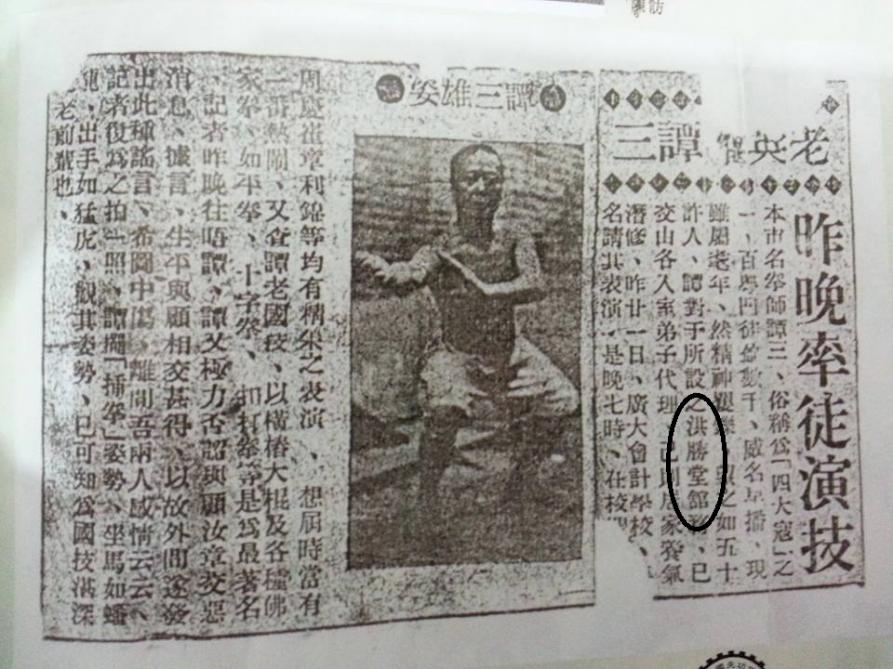 訪
老英雄 譚三
昨晚率徒演技
本市名拳師譚三、俗稱為「四大寇」之
一、百粵門徒數千、威名早播、現
雖屆老年、然精神矍鑠、望之如五十
許人、譚對于所設之洪勝堂館務、已
交山各入室弟子代理、己則居家養氣
潛修、昨廿一日、廣大會計學校、
名請其表演、是晚七時、在校
譚三雄姿
周慶崔章利錦等均有精采之表演、想屆時當有
一番熱鬧、又查譚老國技、以橫樁大棍及各種佛
家拳、如平拳、十字拳、扣打拳等是為最著名
、記者昨晚往晤譚、譚又極力否認與顧汝章交惡
消息、據言、生平與顧相交甚得、以故外間遂發
出此種謠言、希圖中傷、離間吾兩人感情云云、
記者復為之拍一照、譚擺「插拳」姿勢、坐馬如蟠
龍、出手如猛虎、觀其姿勢、已可知為國技湛深
老前輩也、